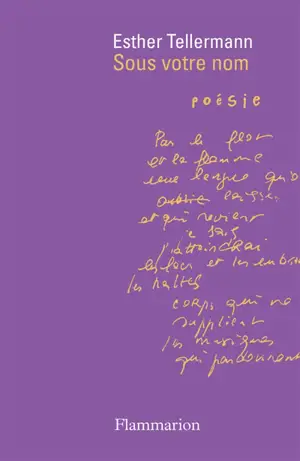 Esther Tellermann
Sous votre nom
poésie
Par le
et la flamme
une langue qu'o
et qui revient
je sais
j'attendrai
et les
les haltes
corps qui ne
supplient
les musiques
qui parcourent
Flammarion